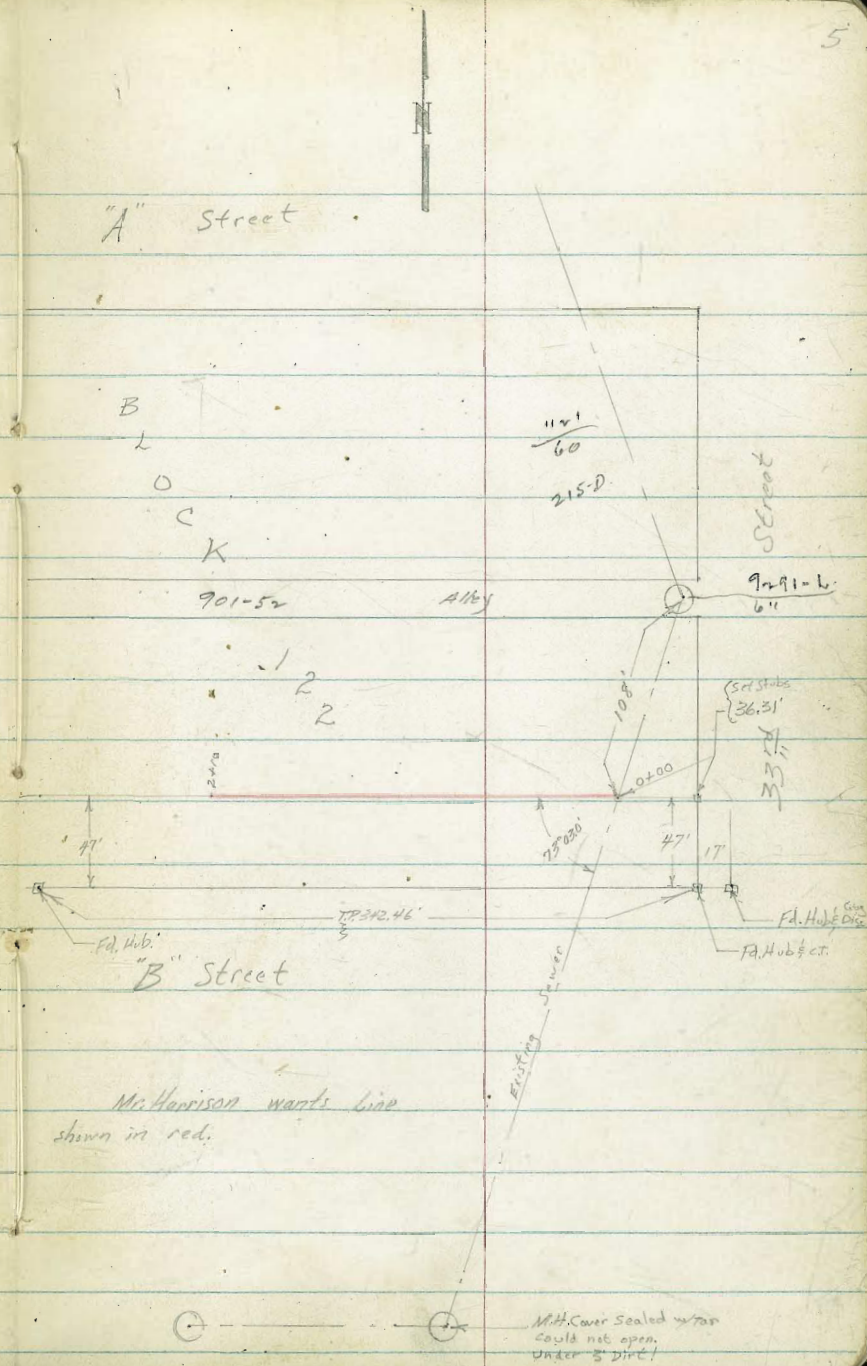 5
N
"A" Street
B
L
O
C
K
112'
60
215-D
Street
901-52
Alley
9291-L
6"
1
2
2
108'
Set Stubs
36.31'
33rd
0+00
47'
73°03.0'
47'
17'
342.46'
Fd. Hub & Disc
Fd. Hub.
Fd. Hub & C.T.
"B" Street
Existing Sewer
Mr. Harrison wants Line
shown in red.
M.H. Cover Sealed w/Tar
Could not open.
Under 3' Dirt!